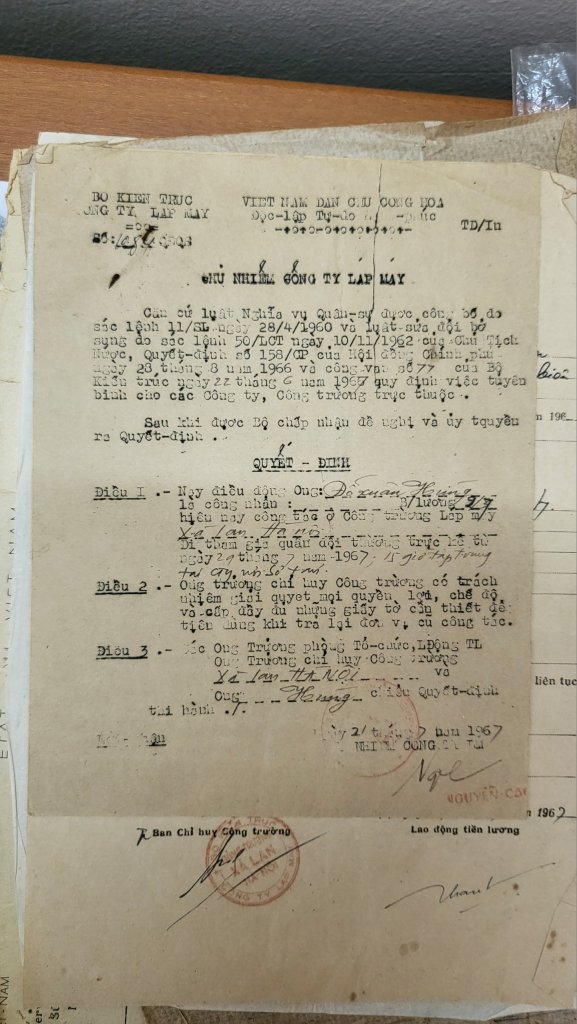 BO KIEN TRUC
ONG TY LAP MAY
=oo=
Số:
VIET NAM DAN CHU CONG HOA
Độc-lập Tự-do -phúc
-+o+o-o+o+o+o+-
TD/Iu
CHỦ NHIỆM CÔNG TY LẮP MÁY
Căn cứ luật Nghĩa vụ Quân-sự được công bố do
sắc lệnh 11/SL ngày 28/4/1960 và luật sửa đổi bổ
sung do sắc lệnh 50/LCT ngày 10/11/1962 của Chủ Tịch
Nước, Quyết-định số 158/CP của Hội đồng Chính phủ
ngày 28 tháng 8 năm 1966 và công văn số 77 của Bộ
Kiến trúc ngày 22 tháng 6 năm 1967 quy định việc tuyển
binh cho các Công ty, Công trường trực thuộc .
Sau khi được Bộ chấp nhận đề nghị và ủy tquyền
ra Quyết-định .
QUYẾT - ĐINH
Điều I .- Nay điều động Ông: Đỗ Xuân Hùng
là công nhân : B/lương
hiện nay công tác ở Công trường Lắp máy
Xà lan Hà nội
Đi tham gia quân đội thường trực kể từ
ngày 20 tháng 7 năm 1967. 15 giờ tập trung
tại
Điều 2 .- Ông trưởng chỉ huy Công trường có trách
nhiệm giải quyết mọi quyền lợi, chế độ
và cấp đầy đủ những giấy tờ cần thiết để
tiện dùng khi trả lại đơn vị cũ công tác.
Điều 3 .- Các Ông Trưởng phòng Tổ-chức, LĐộng TL
Ông Trưởng chỉ huy Công trường
Xà lan HÀ NỘI và
Ông Hùng chiếu Quyết-định
thi hành ./.
ngày 21 tháng 7 năm 1967
NHIỆM CÔNG TY LẮP
NGUYỄN CAO
Ban Chỉ huy Công trường
Lao động tiền lương
XÀ LAN
HÀ NỘI
CÔNG TY LẮP M
196
liên tục
1967